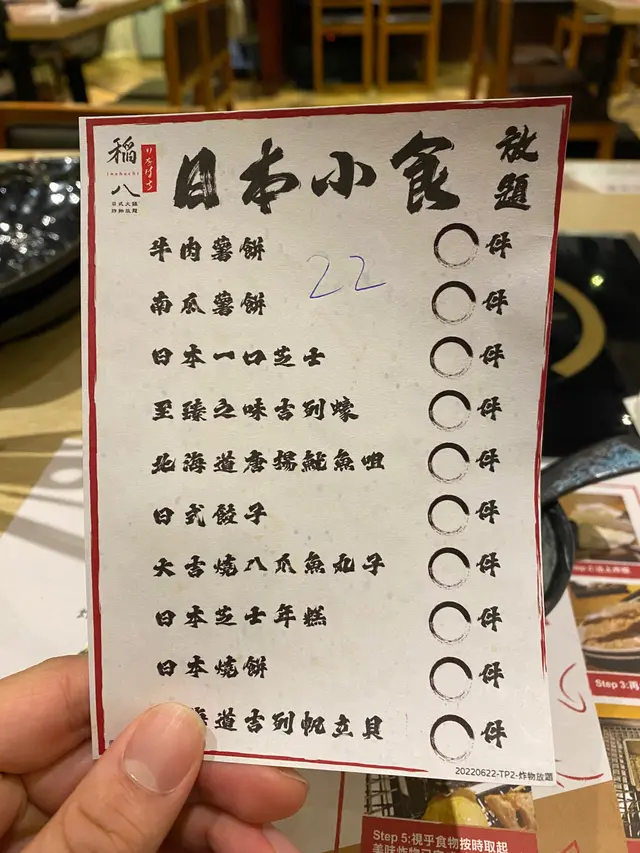 稻八
inahachi
いなはち
日式火鍋
炸物放題
日本小食
放題
22
牛肉薯餅 件
南瓜薯餅 件
日本一口芝士 件
至臻之味吉列蠔 件
北海道唐揚魷魚咀 件
日式餃子 件
大吉燒八爪魚丸子 件
日本芝士年糕 件
日本燒餅 件
道吉列帆立貝 件
20220622-TP2-炸物放題
Step 3:再
Step 5:視乎食物按時取起